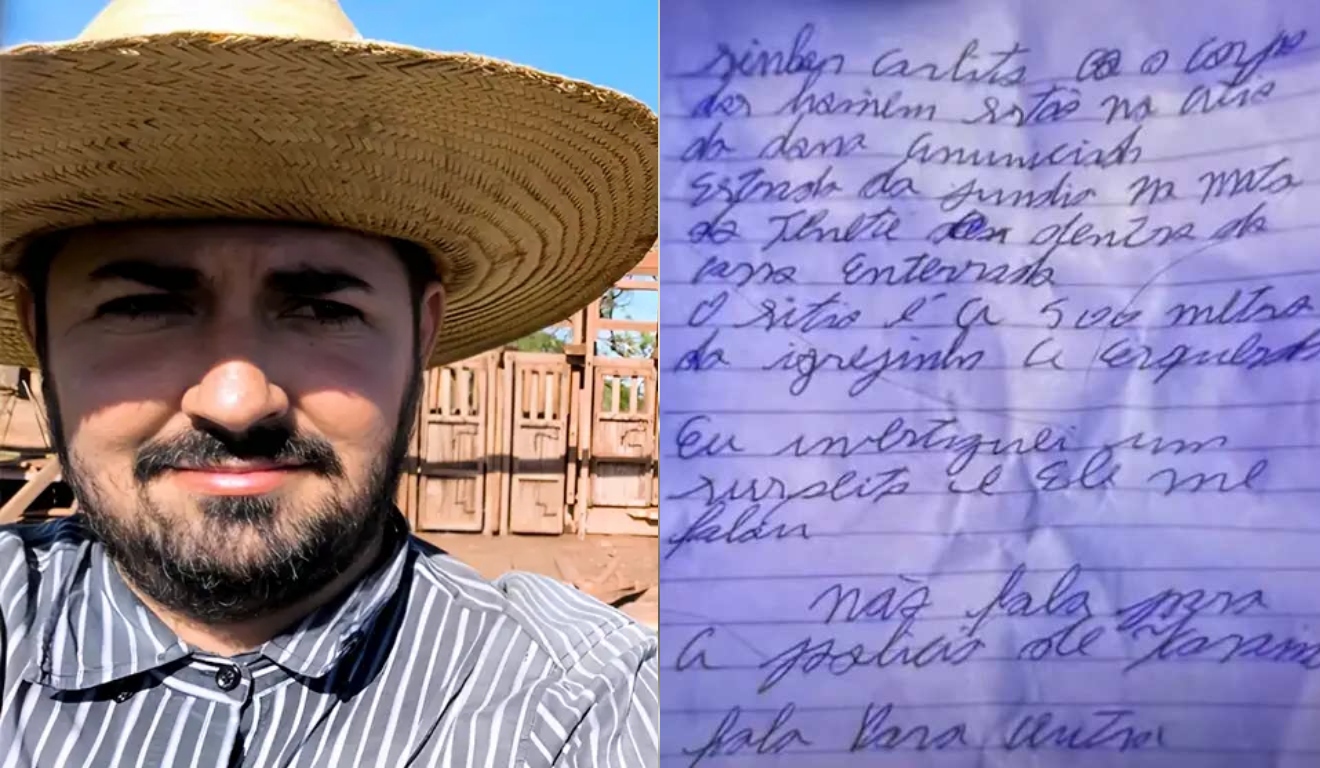 Carlito o corpo
dos homem estão no
da dona anunciada
Estrada da jundia na mata
do Tenete dentro do
carro enterrado
O sitio é a 500 metro
da igrejinha a esquerda
Eu investiguei um
suspeito e Ele me
falou
não fala para
a policia de
fala para outra